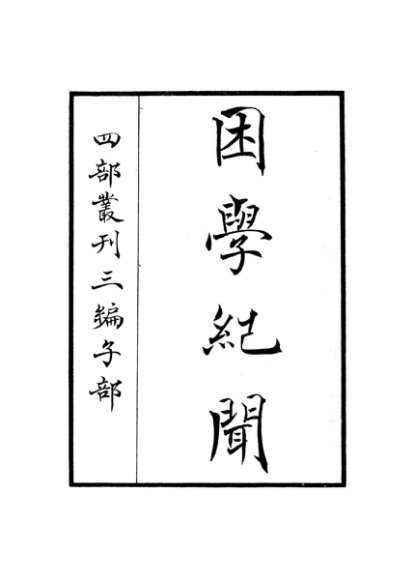 困學紀聞
四部叢刊三編子部